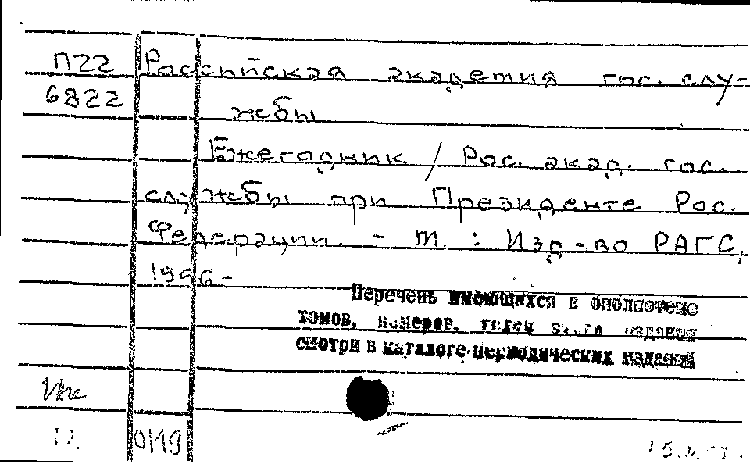 П22 Российская академия гос. слу-
6822 жбы
Ежегодник / Рос. акад. гос.
службы при Президенте Рос.
Федерации. - М : Изд-во РАГС,
1996-
Перечень имеющихся в библиотеке
томов, номеров, этого издания
смотри в каталоге периодических изданий